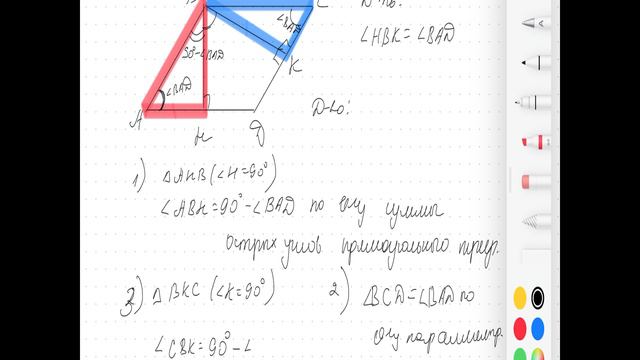 ∠BAD
∠HBK = ∠BAD
90°-∠BAD
K
∠BAD
A
H
D
Д-во:
1) △AHB (∠H=90°)
∠ABH = 90° - ∠BAD по св-ву суммы
острых углов прямоугольного треуг.
3) △BKC (∠K=90°)
2) ∠BCD = ∠BAD по
св-ву параллелогр.
∠CBK = 90° - ∠